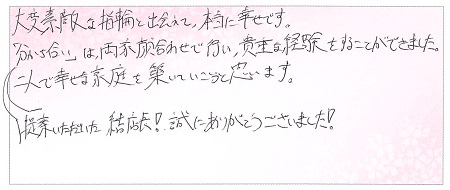 大変素敵な指輪と出会えて、本当に幸せです。
「分かち合い」は、両家顔合わせで行い、貴重な経験をすることができました。
二人で幸せな家庭を築いていこうと思います。
提案いただいた 結店長! 誠にありがとうございました!